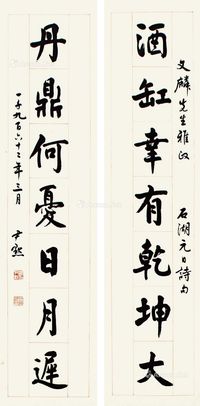 酒缸幸有乾坤大
文麟先生雅政
石湖元日詩句
丹鼎何憂日月遲
一千九百六十二年三月
尹默